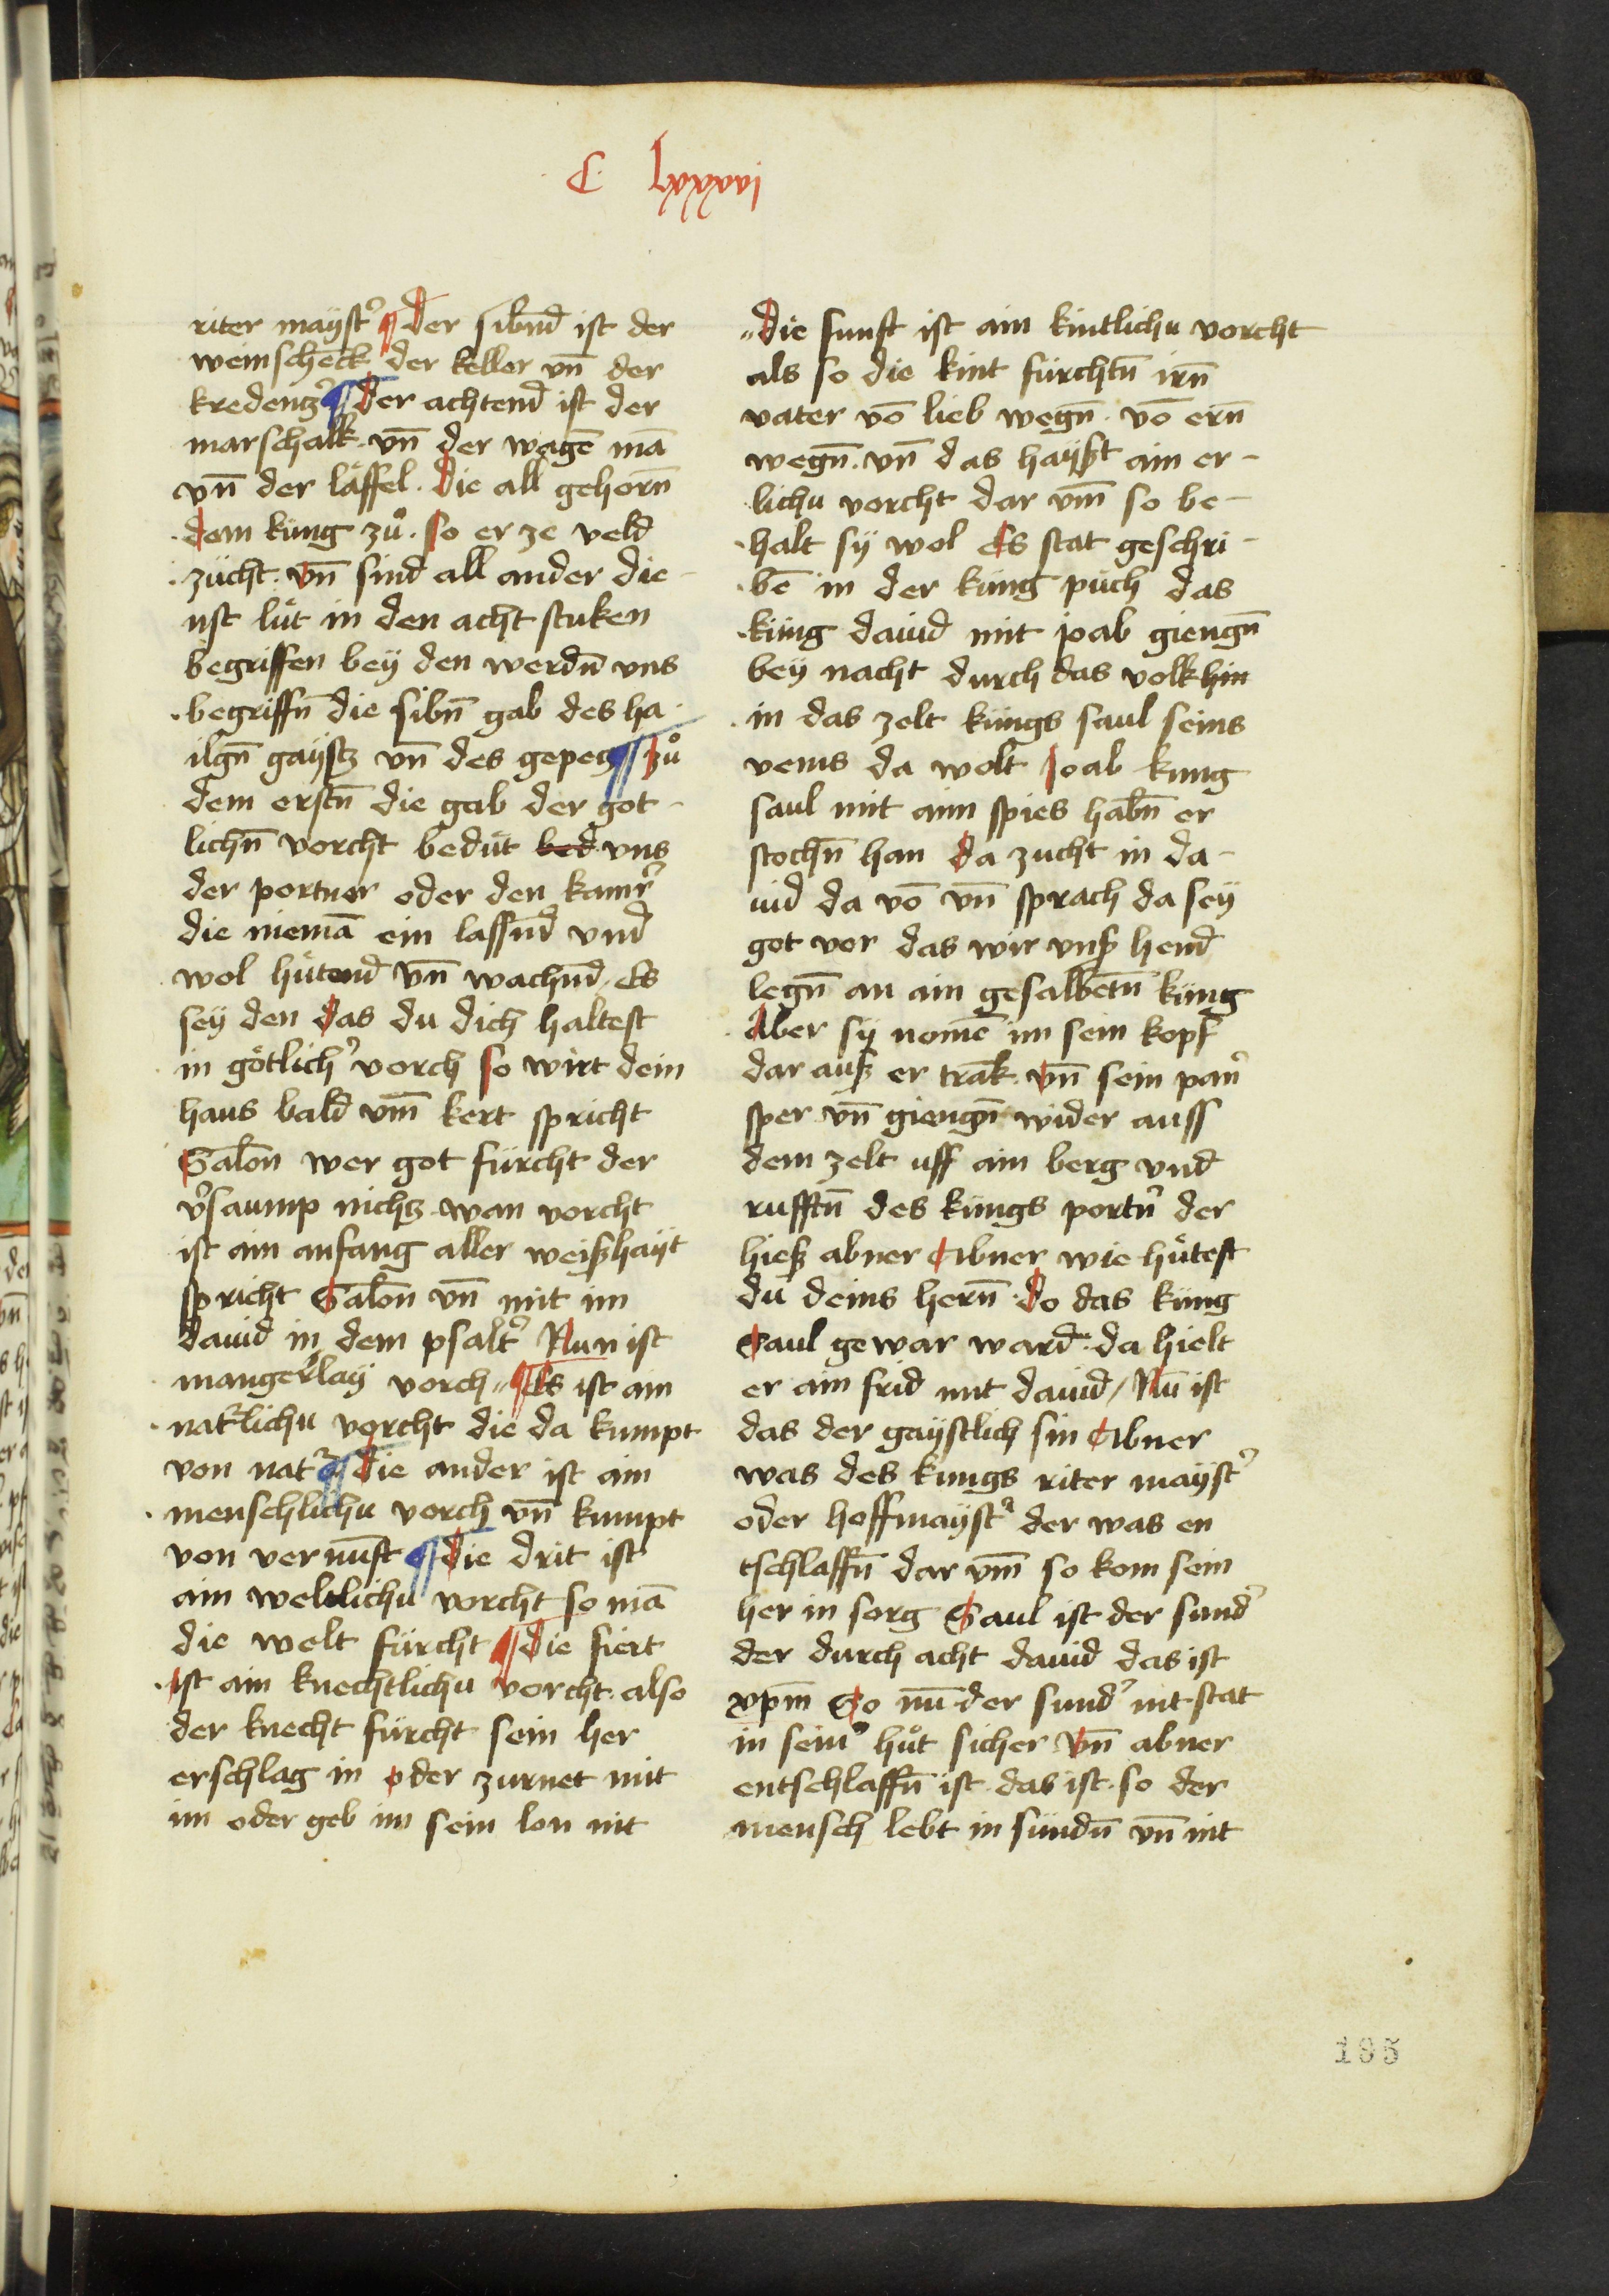 C lxxxxvi
riter mayst᷒ ¶ Der sibnd̄ ist der
weinschenck der keller vn̄ der
kredentz᷒ ¶ Der achtend̄ ist der
marschalk. vn̄ der wagē mā
vn̄ der läffel. Die all gehorn̄
dem küng zuͦ. so er ze veld
zücht. vn̄ sind all ander die-
nst lüt in den acht stuken
begriffen bey den werdn̄ vns
begriffn̄ die sibn̄ gab des ha-
ilgn̄ gaystz vn̄ des gepetz ¶ zuͦ
dem erstn̄ die gab der got-
lichn̄ vorcht bedüt bed vns
der portner oder den kamr᷒
die niemā ein lassnd̄ vnd
wol hütend vn̄ wachnd̄ / Es
sey den das du dich haltest
in götlich᷒ vorch so wirt dein
haus bald vm̄ kert spricht
Salōn wer got fürcht der
v᷒saump nichtz. wan vorcht
ist ain anfang aller weißhayt
spricht Salōn vn̄ mit im
dauid in dem psalt᷒ Nun ist
mangerlay vorch ¶ Es ist ain
nat᷒lichu vorcht die da kumpt
von nat᷒ ¶ Die ander ist ain
menschlichu vorch vn̄ kumpt
von vernunft ¶ Die drit ist
ain weltlichu vorcht so mā
die welt fürcht ¶ Die fiert
ist ain knechtlichu vorcht. also
der knecht fürcht sein her
erschlag in oder zurnet mit
im oder geb im sein lon nit
Die funft ist ain kintlichu vorcht
als so die kint fürchtn̄ irn̄
vater vō lieb wegn̄. vō ern̄
wegn̄. vn̄ das hayßt ain er-
lichu vorcht dar vm̄ so be-
halt sy wol Es stat geschri-
bē in der küng puch das
küng dauid mit joab giengn̄
bey nacht durch das volk hin
in das zelt küngs saul seins
veins da wolt Joab kung
saul mit aim spies habn̄ er
stochn̄ han Da zucht in da-
uid da vō vn̄ sprach da sey
got vor das wir vnß hend
legn̄ an ain gesalbetn̄ küng
Aber sy nomē im sein kopf
dar auß er trāk. vn̄ sein pan᷒
sper vn̄ giengn̄ wider auss
dem zelt uff ain berg vnd
rufftn̄ des küngs portn᷒ der
hieß abner Abner wie hütest
du deins hern̄. Do das küng
Saul gewar ward. da hielt
er ain frid mit dauid / Nū ist
das der gaystlich sin Abner
was des kungs riter mayst᷒
oder hoffmayst᷒ der was en
tschlaffn̄ dar vm̄ so kom sein
her in sorg Saul ist der sund᷒
der durch acht dauid das ist
xp̄m So nū der sund᷒ nit stat
in sein᷒ huͦt sicher vn̄ abner
entschlaffn̄ ist. das ist. so der
mensch lebt in sündn̄ vn̄ nit
195